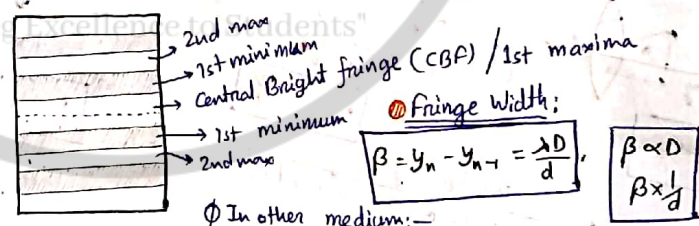 g Excellence to Students"
2nd max
1st minimum
Central Bright fringe (CBF) / 1st maxima
1st minimum
2nd max
Fringe Width:
β = yₙ - yₙ₋₁ = λD/d
β ∝ D
β × 1/d
In other medium:—